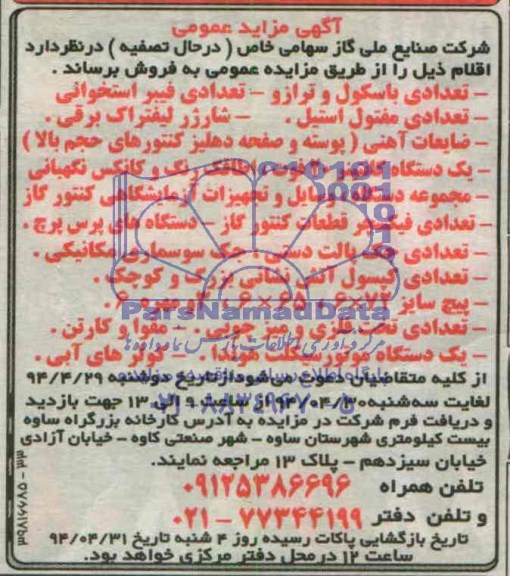 آگهی مزاید عمومی
شرکت صنایع ملی گاز سهامی خاص ( درحال تصفیه ) درنظردارد
اقلام ذیل را از طریق مزایده عمومی به فروش برساند .
– تعدادی باسکول و ترازو – تعدادی فیبر استخوانی
– تعدادی مفتول استیل . – شارژر لیفتراک برقی .
– ضایعات آهنی ( پوسته و صفحه دهلیز کنتورهای حجم بالا )
– یک دستگاه رنگ و کانکس نگهبانی
– مجموعه دستگاه وسایل و تجهیزات آزمایشگاهی کنتور گاز
– تعدادی قطعات کنتور گاز – دستگاه های پرس پرچ .
– تعدادی جک پالت دستی ، جک سوسماری مکانیکی .
– تعدادی کپسول آتش نشانی بزرگ و کوچک .
– پیچ سایز
ParsNamadData
– تعدادی تخت فلزی و میز چوبی . – مقوا و کارتن .
– یک دستگاه موتورسیکلت هوندا . – کولر های آبی .
از کلیه متقاضیان دعوت می‌شود ازتاریخ دوشنبه ۹۴/۴/۲۹
لغایت سه‌شنبه ۹۴/۰۴/۳۰ از ساعت ۹ الی ۱۳ جهت بازدید
و دریافت فرم شرکت در مزایده به آدرس کارخانه بزرگراه ساوه
بیست کیلومتری شهرستان ساوه – شهر صنعتی کاوه – خیابان آزادی
خیابان سیزدهم – پلاک ۱۳ مراجعه نمایند.
تلفن همراه ۰۹۱۲۵۳۸۶۶۹۶
و تلفن دفتر ۷۷۳۴۴۱۹۹ – ۰۲۱
تاریخ بازگشایی پاکات رسیده روز ۴ شنبه تاریخ ۹۴/۰۴/۳۱
ساعت ۱۲ در محل دفتر مرکزی خواهد بود.